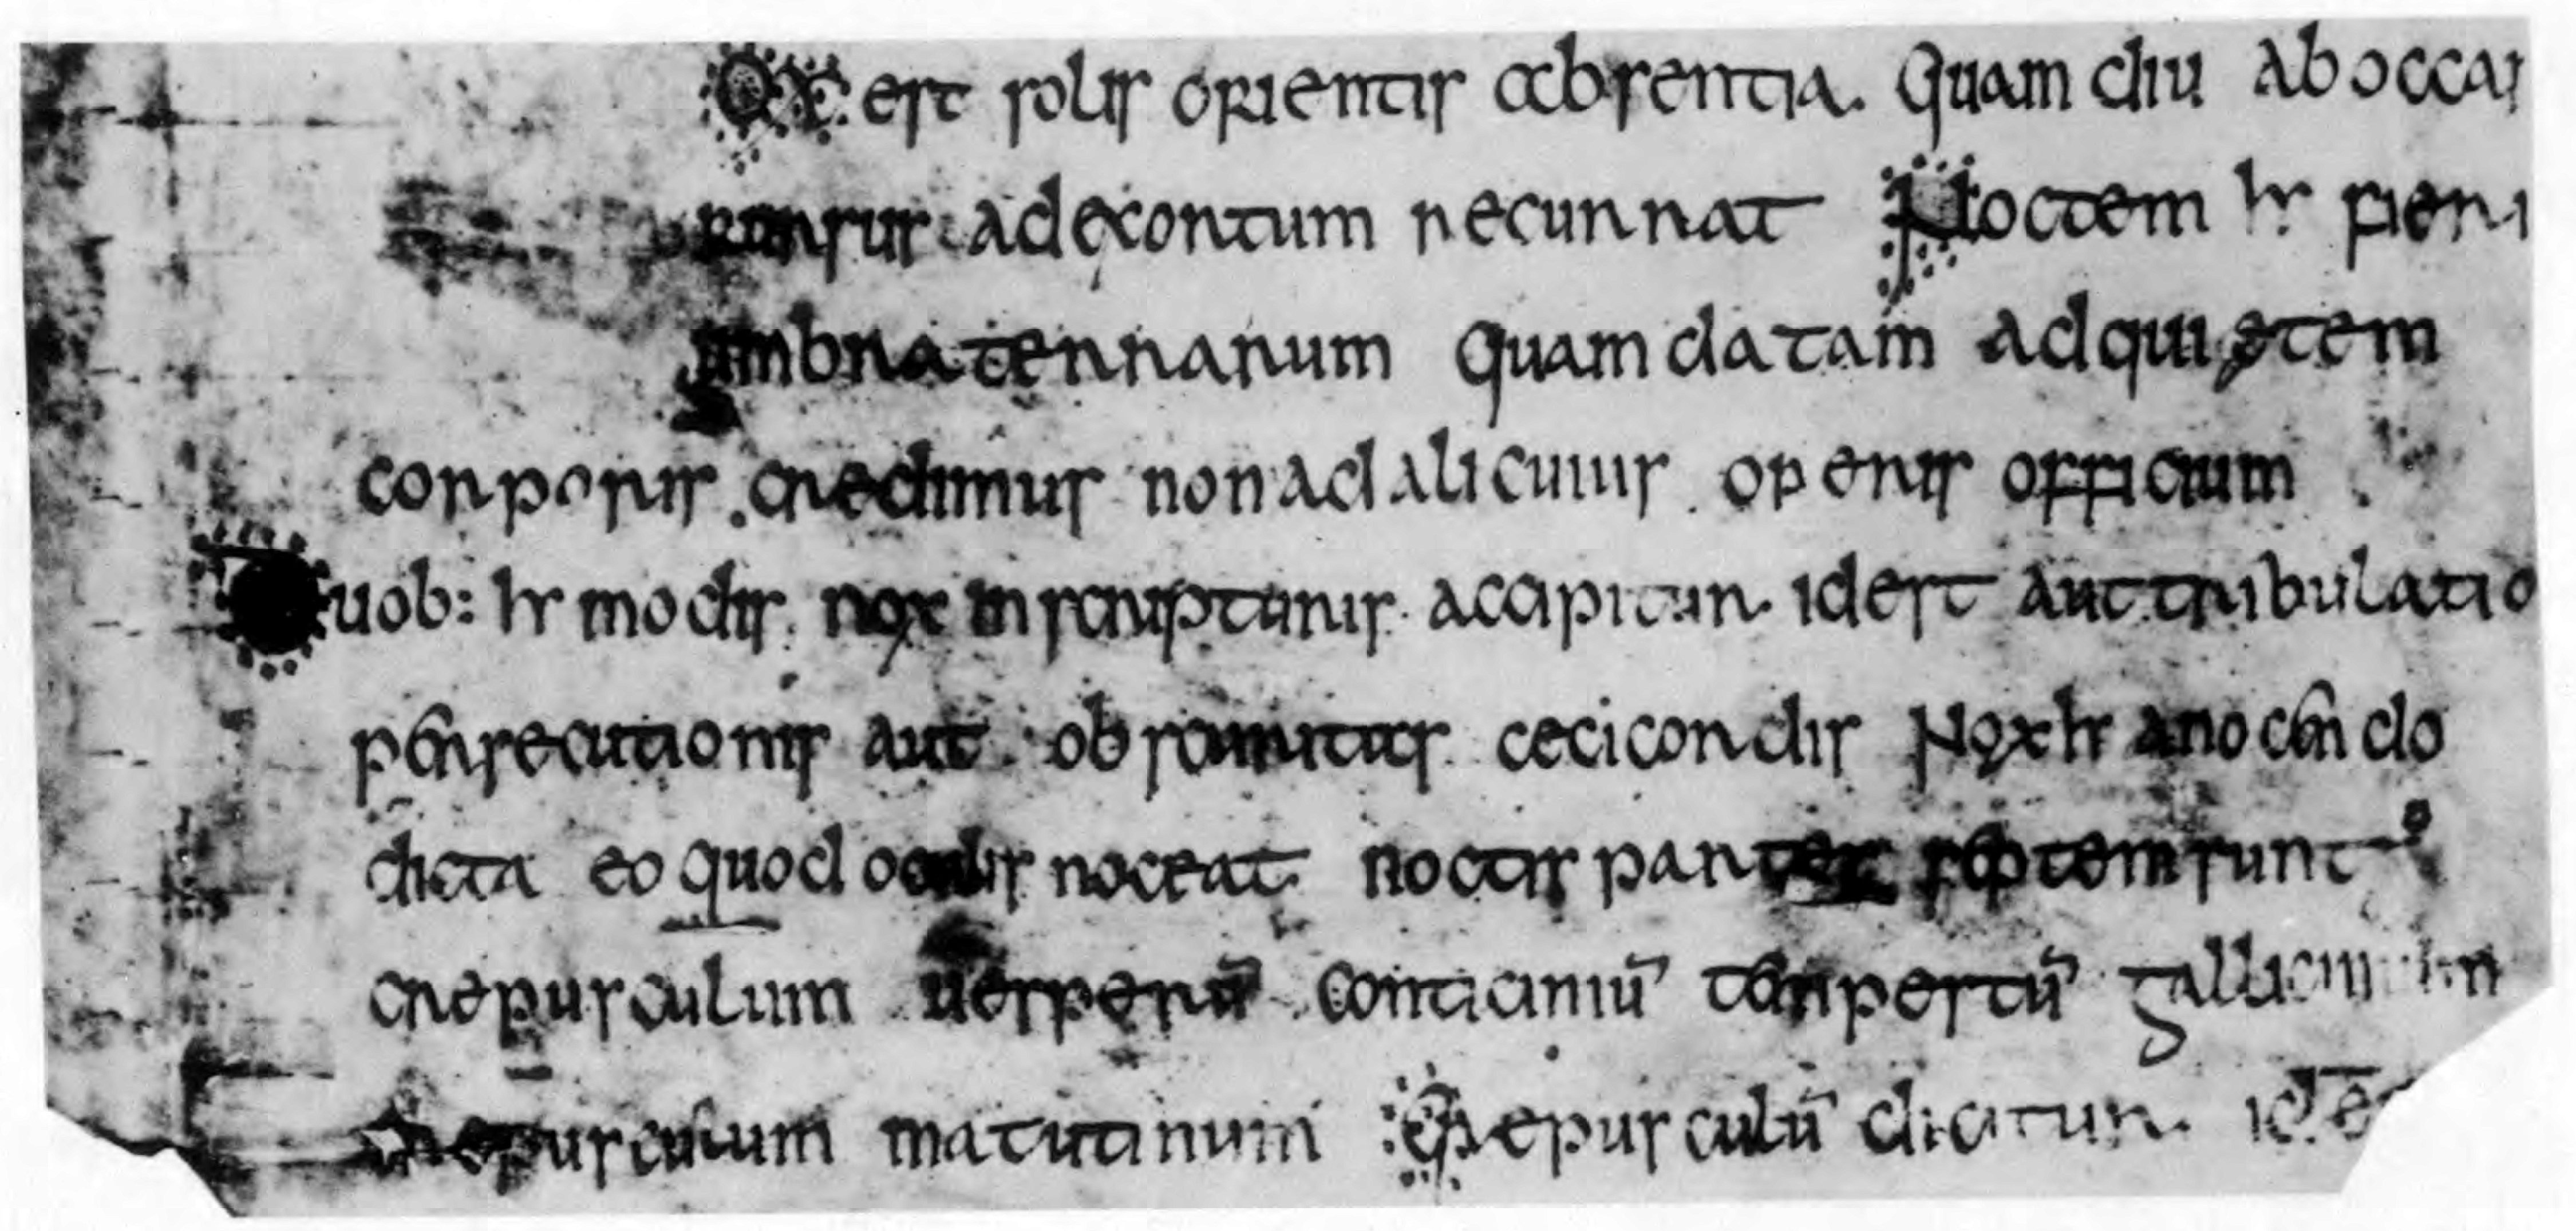 Ox est solis orientis absentia. Quam diu ab occas
rursus adexortum recurrat Noctem hr fieri
umbra terrarum quam datam ad quietem
corporis. credimus non ad alicuius operis officium
Duob: hr modis. nox in scripturis. accipitur. idest aut tribulatio
persecutionis aut obscuritas ceci cordis Nox hr a nocendo
dicta eo quod oculis noceat noctis partes septem sunt
crepusculum uesperū conticiniū tempestū gallicinium
crepusculum matutinum Crepusculū dicitur. id e